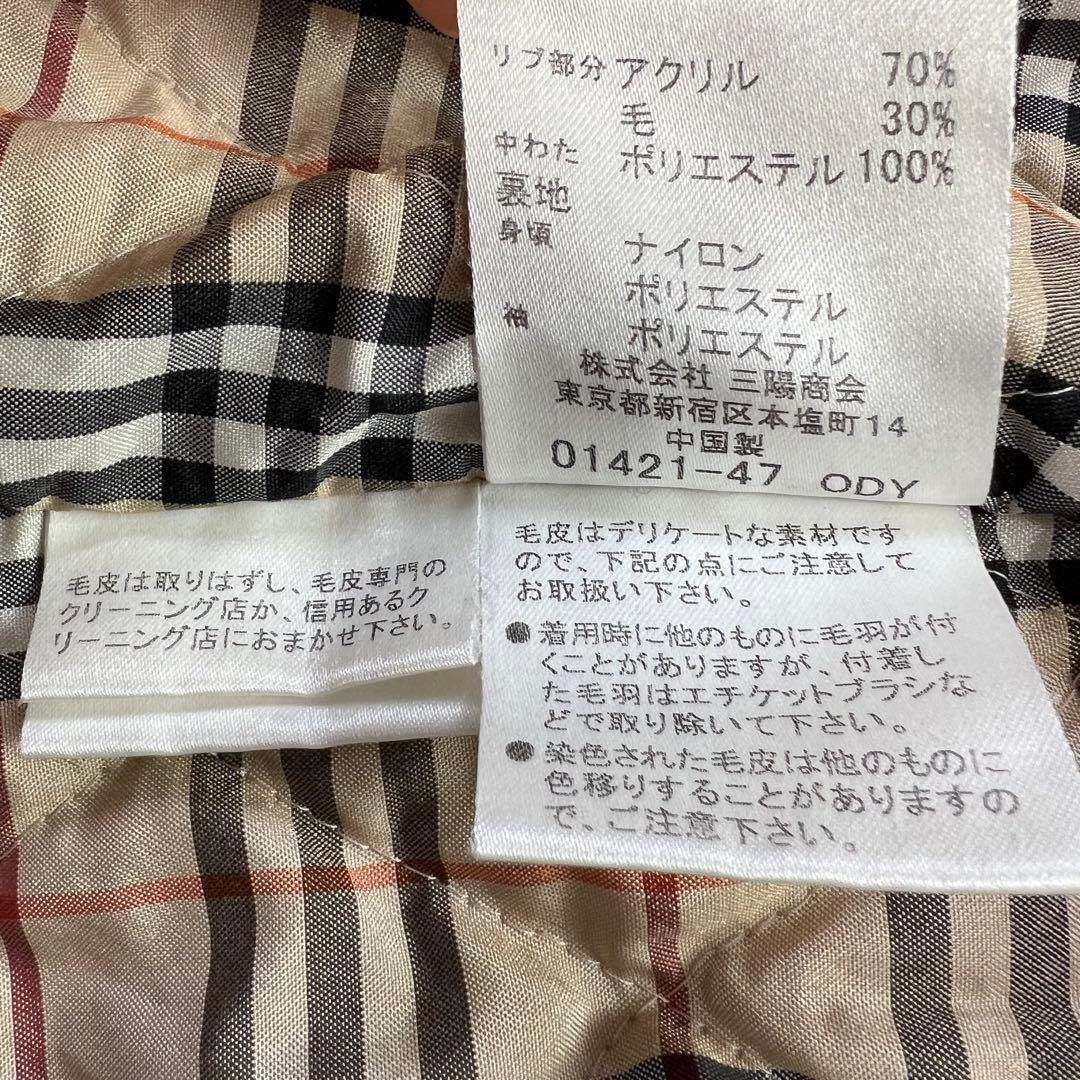 リブ部分 アクリル 70%
毛 30%
中わた ポリエステル 100%
裏地
身頃 ナイロン
ポリエステル
袖 ポリエステル
株式会社 三陽商会
東京都新宿区本塩町14
中国製
01421-47 ODY
毛皮は取りはずし、毛皮専門の
クリーニング店か、信用あるク
リーニング店におまかせ下さい。
毛皮はデリケートな素材です
ので、下記の点にご注意して
お取扱い下さい。
●着用時に他のものに毛羽が付
くことがありますが、付着し
た毛羽はエチケットブラシな
どで取り除いて下さい。
●染色された毛皮は他のものに
色移りすることがありますの
で、ご注意下さい。